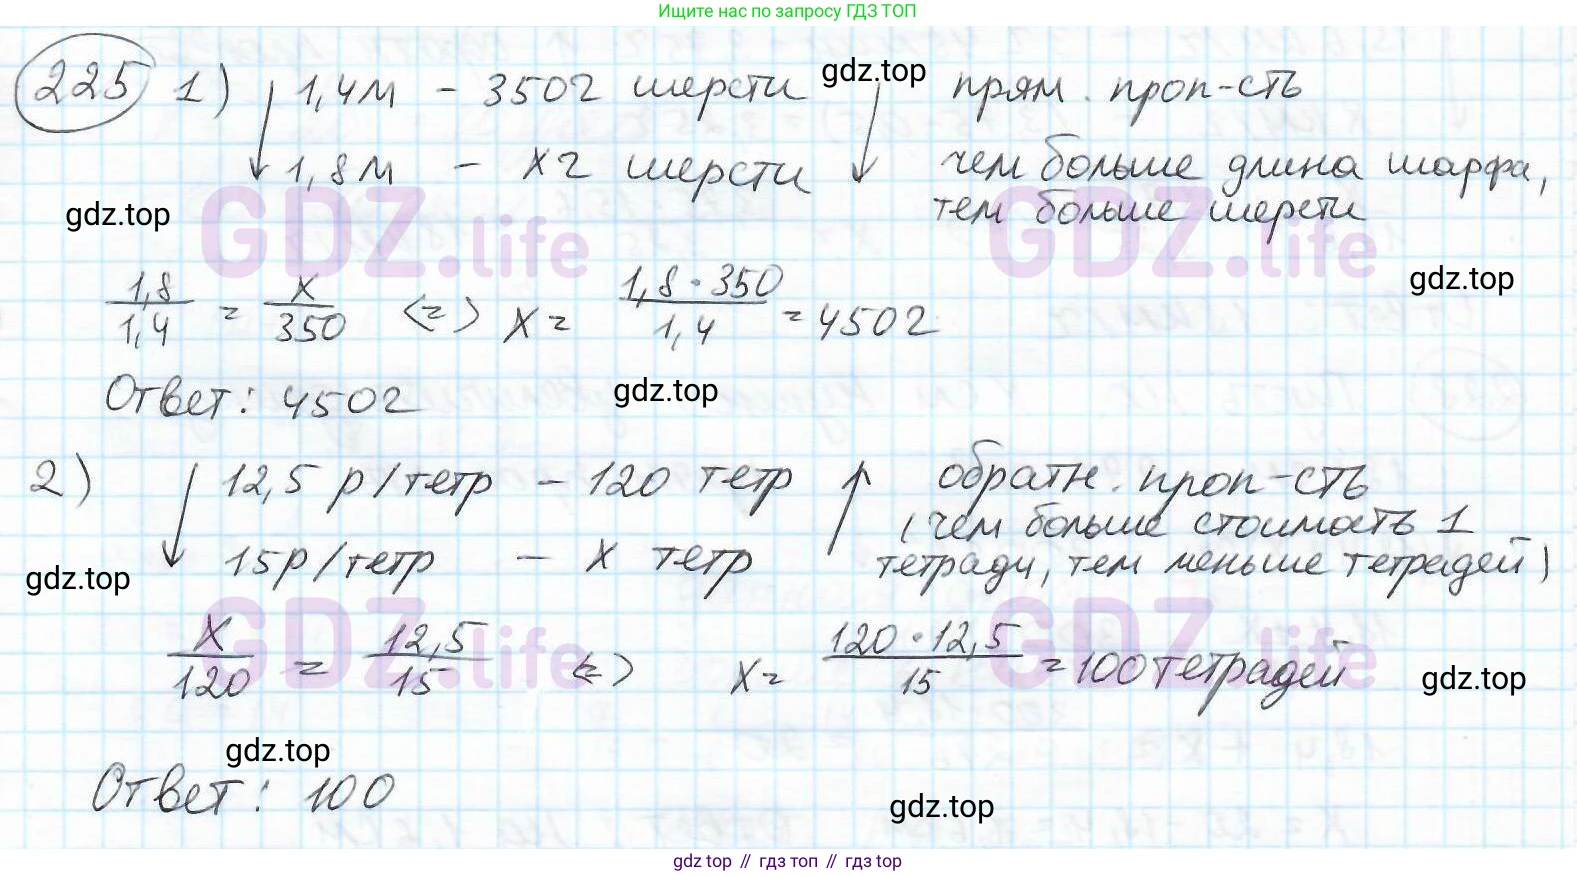 Ищите нас по запросу ГДЗ ТОП
225 1) 1,4м - 350г шерсти gdz.top прям. проп-сть
1,8м - xг шерсти чем больше длина шарфа,
gdz.top тем больше шерсти
GDZ.life GDZ.life
gdz.top
1,8/1,4 = x/350 <=> x = 1,8·350/1,4 = 450г
Ответ: 450г gdz.top
2) 12,5 р/тетр - 120 тетр обратн. проп-сть
(чем больше стоимость 1
15р/тетр - x тетр тетради, тем меньше тетрадей)
gdz.top
GDZ.life GDZ.life
x/120 = 12,5/15 <=> x = 120·12,5/15 = 100 тетрадей gdz.top
gdz.top
Ответ: 100
gdz.top
gdz top // гдз топ // гдз top